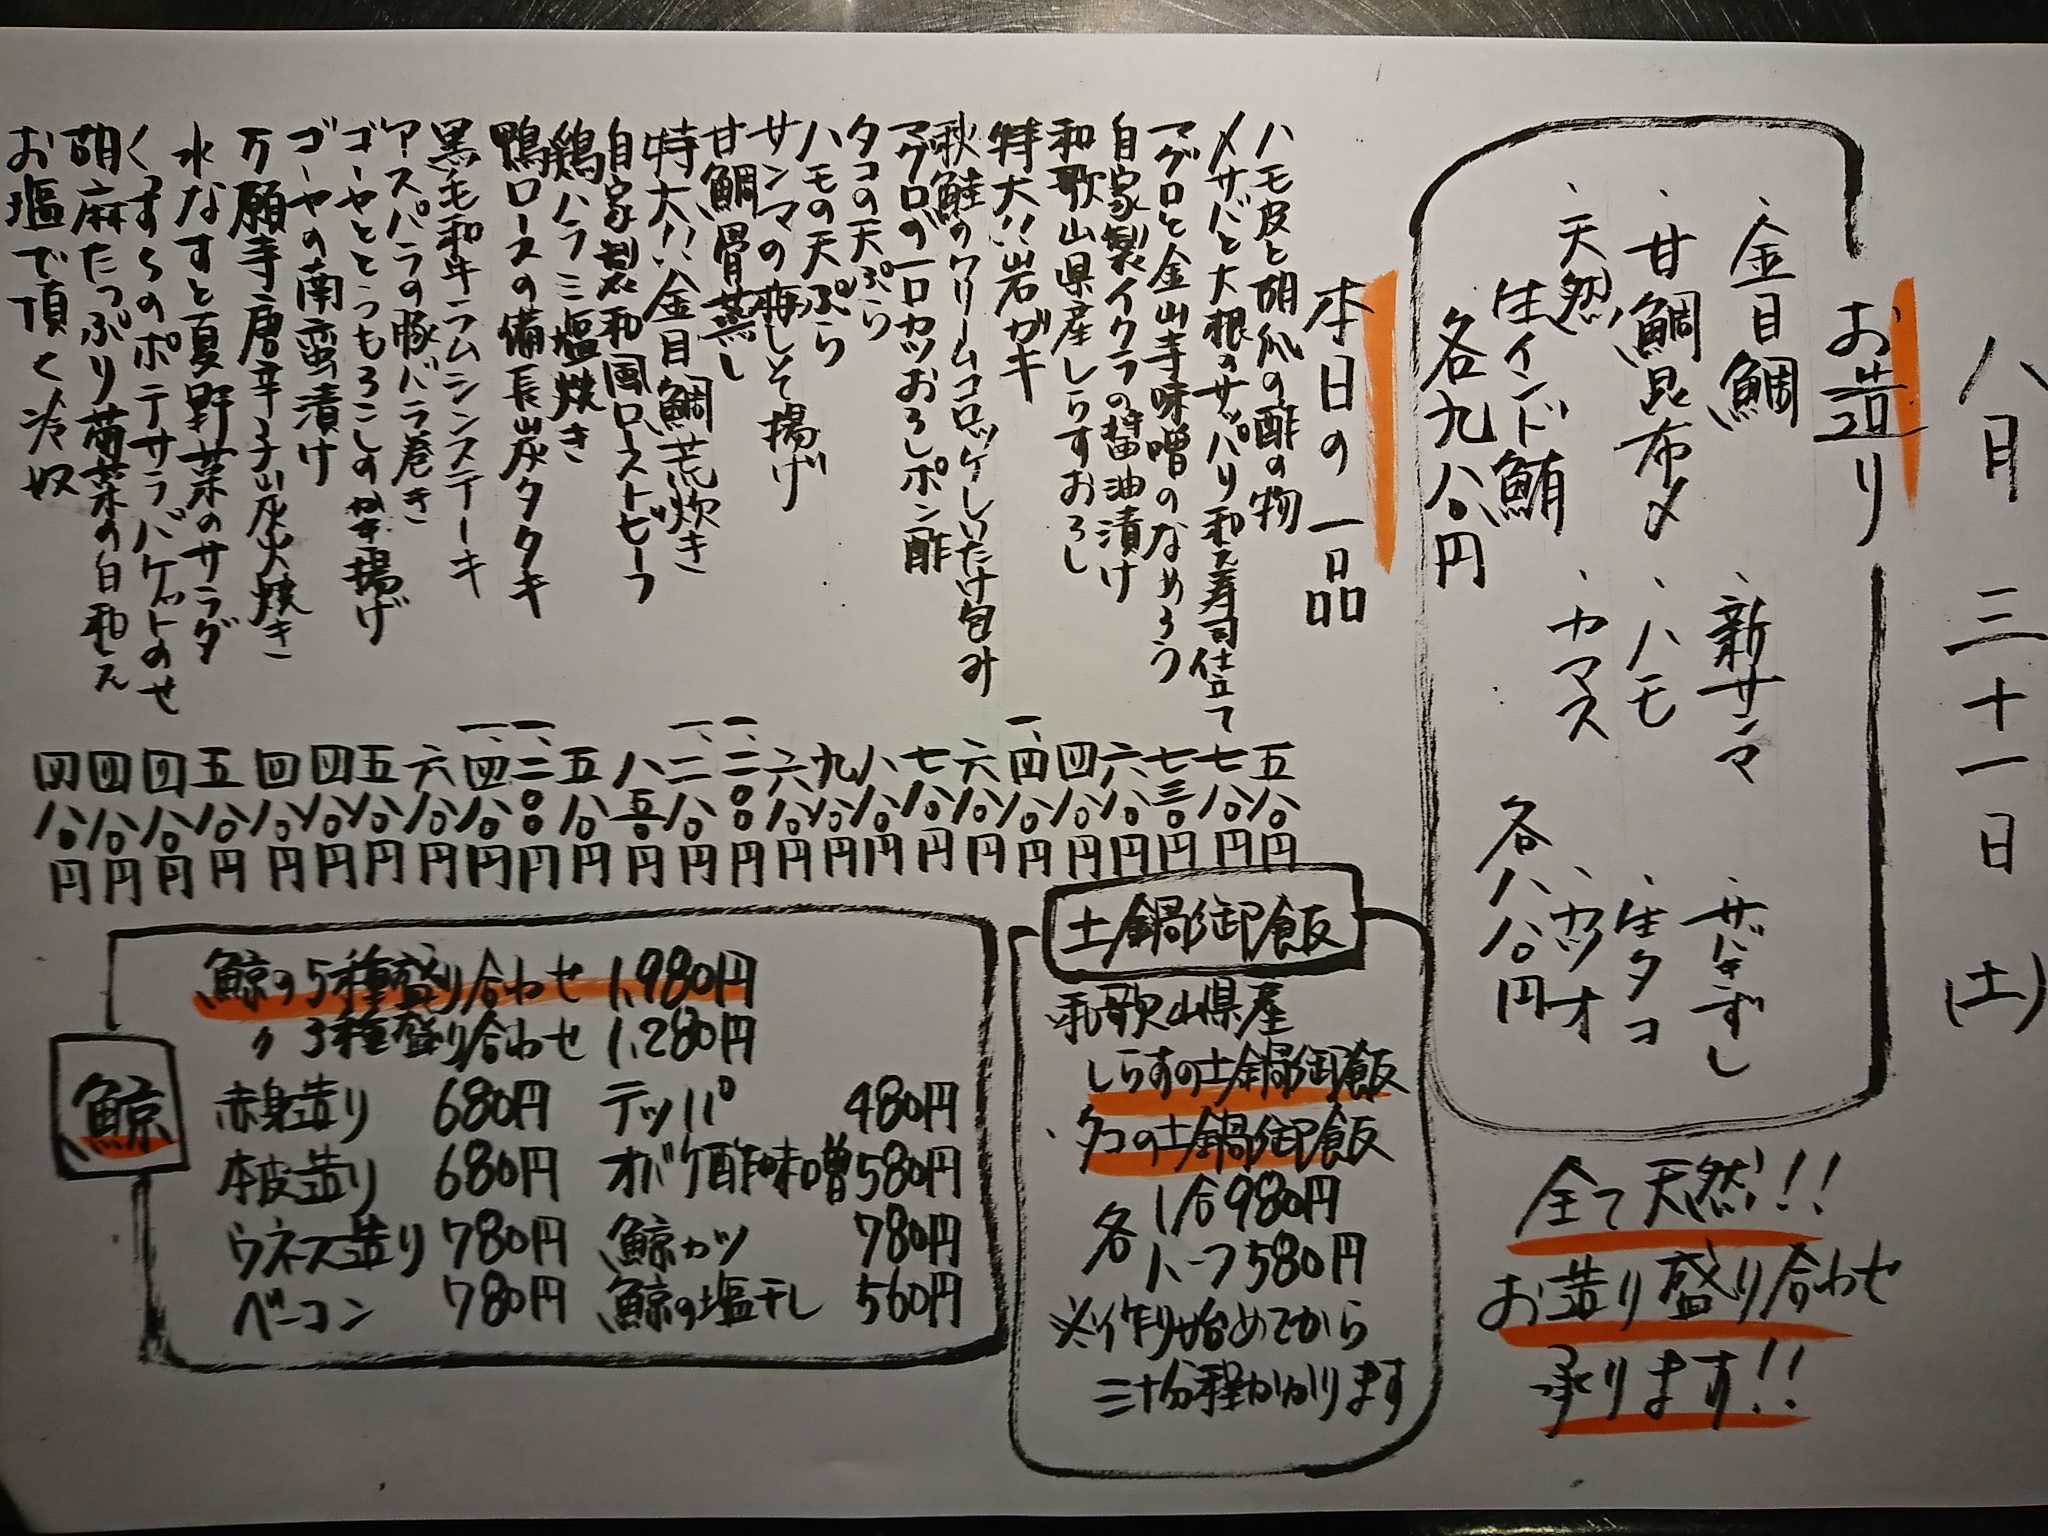 八月三十一日(土)
お造り
・金目鯛 ・新サンマ ・サバきずし
・甘鯛昆布〆 ・ハモ ・生タコ
・天然生インド鮪 ・カマス ・カツオ
各九八〇円 各八八〇円
全て天然!!
お造り盛り合わせ
承ります!!
本日の一品
ハモ皮と胡瓜の酢の物 五八〇円
〆サバと大根のサッパリ和え寿司仕立て 七八〇円
マグロと金山寺味噌のなめろう 七三〇円
自家製イクラの醤油漬け 六八〇円
和歌山県産しらすおろし 四八〇円
特大!!岩ガキ 一、四八〇円
秋鮭のクリームコロッケしいたけ包み 六八〇円
マグロの一口カツおろしポン酢 七八〇円
タコの天ぷら 八八〇円
ハモの天ぷら 九八〇円
サンマの梅しそ揚げ 六八〇円
甘鯛骨蒸し 一、二〇〇円
特大!!金目鯛荒炊き 一、二八〇円
自家製和風ローストビーフ 八五〇円
鶏ハラミ塩焼き 五八〇円
鴨ロースの備長炭タタキ 一、二〇〇円
黒毛和牛ラムシンステーキ 一、四八〇円
アスパラの豚バラ巻き 六八〇円
ゴーヤととうもろこしのかき揚げ 五八〇円
ゴーヤの南蛮漬け 四八〇円
万願寺唐辛子炭火焼き 四八〇円
水なすと夏野菜のサラダ 五八〇円
ポテサラバケットのせ 四八〇円
胡麻たっぷり菊菜の白和え 四八〇円
お塩で頂く冷奴 四八〇円
土鍋御飯
和歌山県産
しらすの土鍋御飯
・タコの土鍋御飯
各 1合980円
ハーフ580円
※作り始めてから
三十分程かかります
鯨
鯨の5種盛り合わせ 1,980円
〃 3種盛り合わせ 1,280円
赤身造り 680円 テッパ 480円
本皮造り 680円 オバケ酢味噌 580円
ウネス造り 780円 鯨カツ 780円
ベーコン 780円 鯨の塩干し 560円